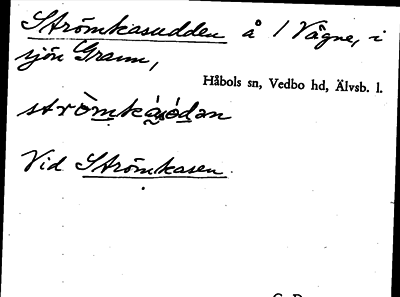 Strömkasudden å 1 Vågne, i
sjön Grann,
Håbols sn, Vedbo hd, Älvsb. l.
Vid Strömkasen.